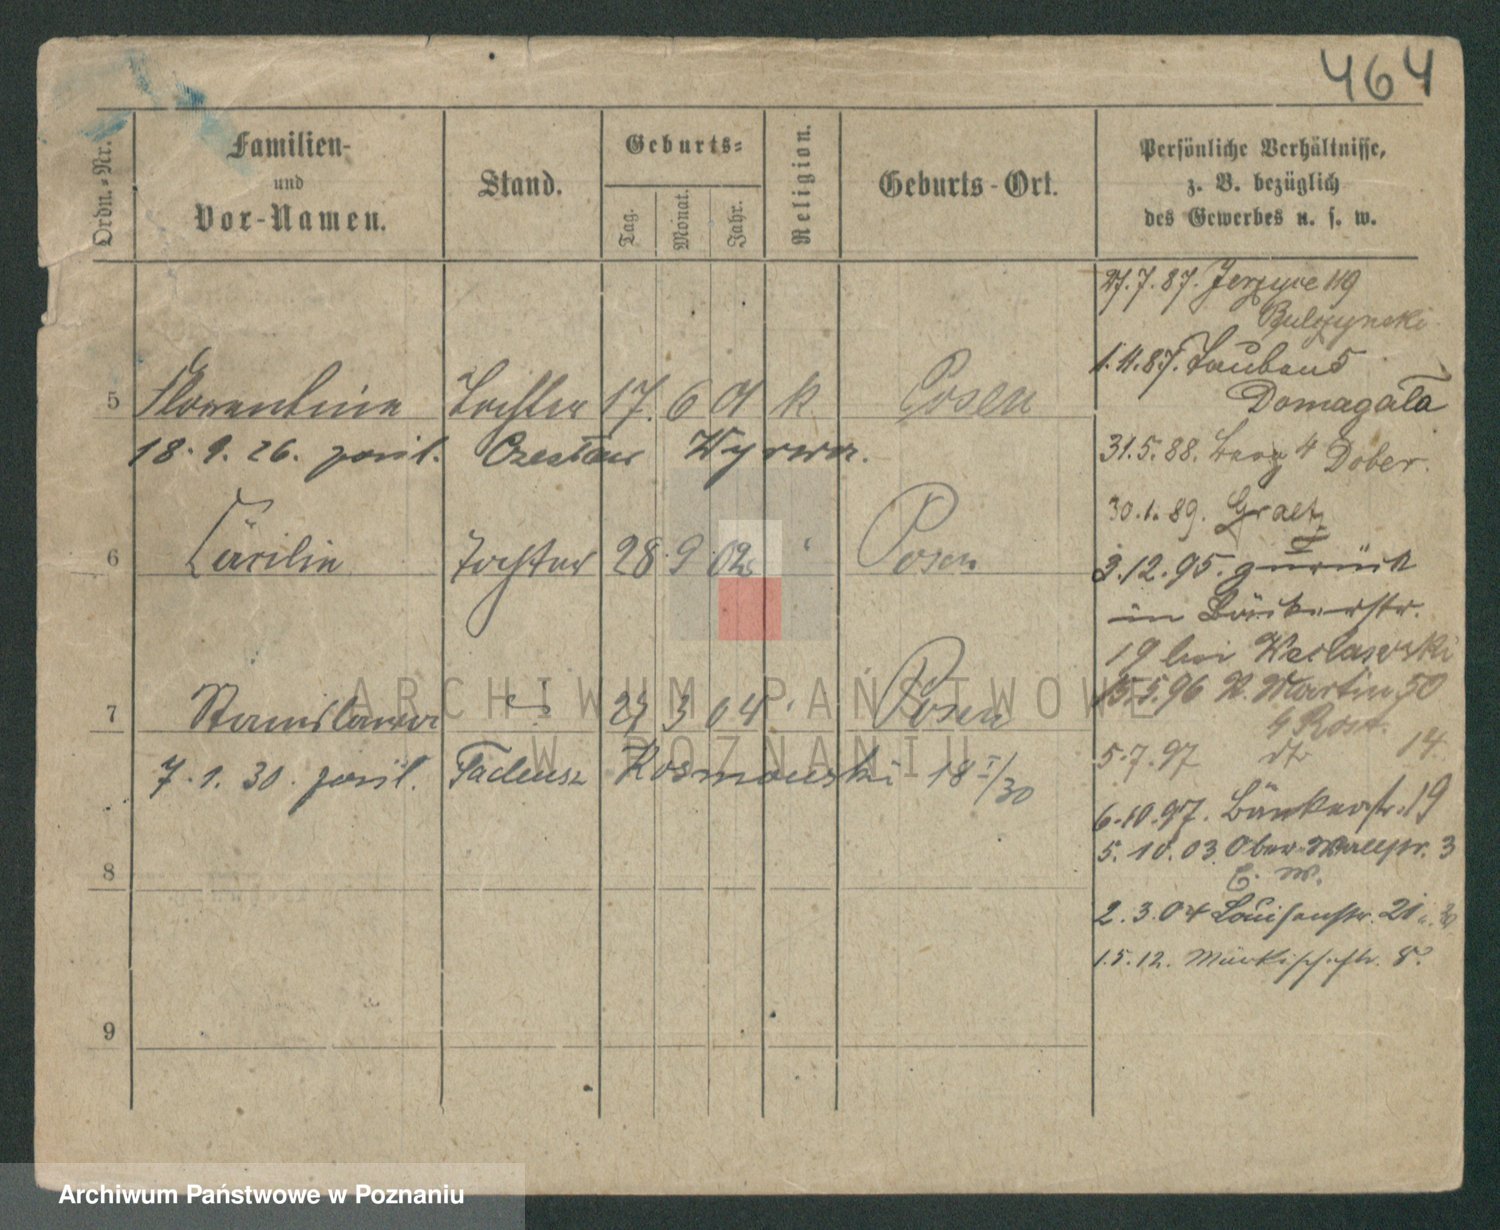 464
Ordn.-Nr.
Familien-
und
Vor-Namen.
Stand.
Geburts-
Tag.
Monat.
Jahr.
Religion.
Geburts-Ort.
Persönliche Verhältnisse,
z. B. bezüglich
des Gewerbes u. s. w.
5 Florentine Tochter 17. 6 01 k Posen
18. 9. 26. Czesław Wyrwa.
6 Cäcilie Tochter 28 9 02 Posen
7 Stanislawa 27 3 04 Posen
7. 1. 30. Tadeusz Rosmowski 18 I/30
8
9
27.7.87. Jerzyce 119
1.11.87. Taubens 5
Domagała
31.5.88. Berg 4 Dober.
30.1.89. Graetz
3.12.95. zurück
in Bäckerstr.
19 bei Weclawski
15.5.96 St. Martin 50
5.7.97 14.
6.10.97. Bäckerstr. 19
5.10.03. Ober-Wallstr. 3
2.3.04 Louisenstr. 21
1.5.12. Märkischestr. 8.
ARCHIWUM PAŃSTWOWE
W POZNANIU
Archiwum Państwowe w Poznaniu